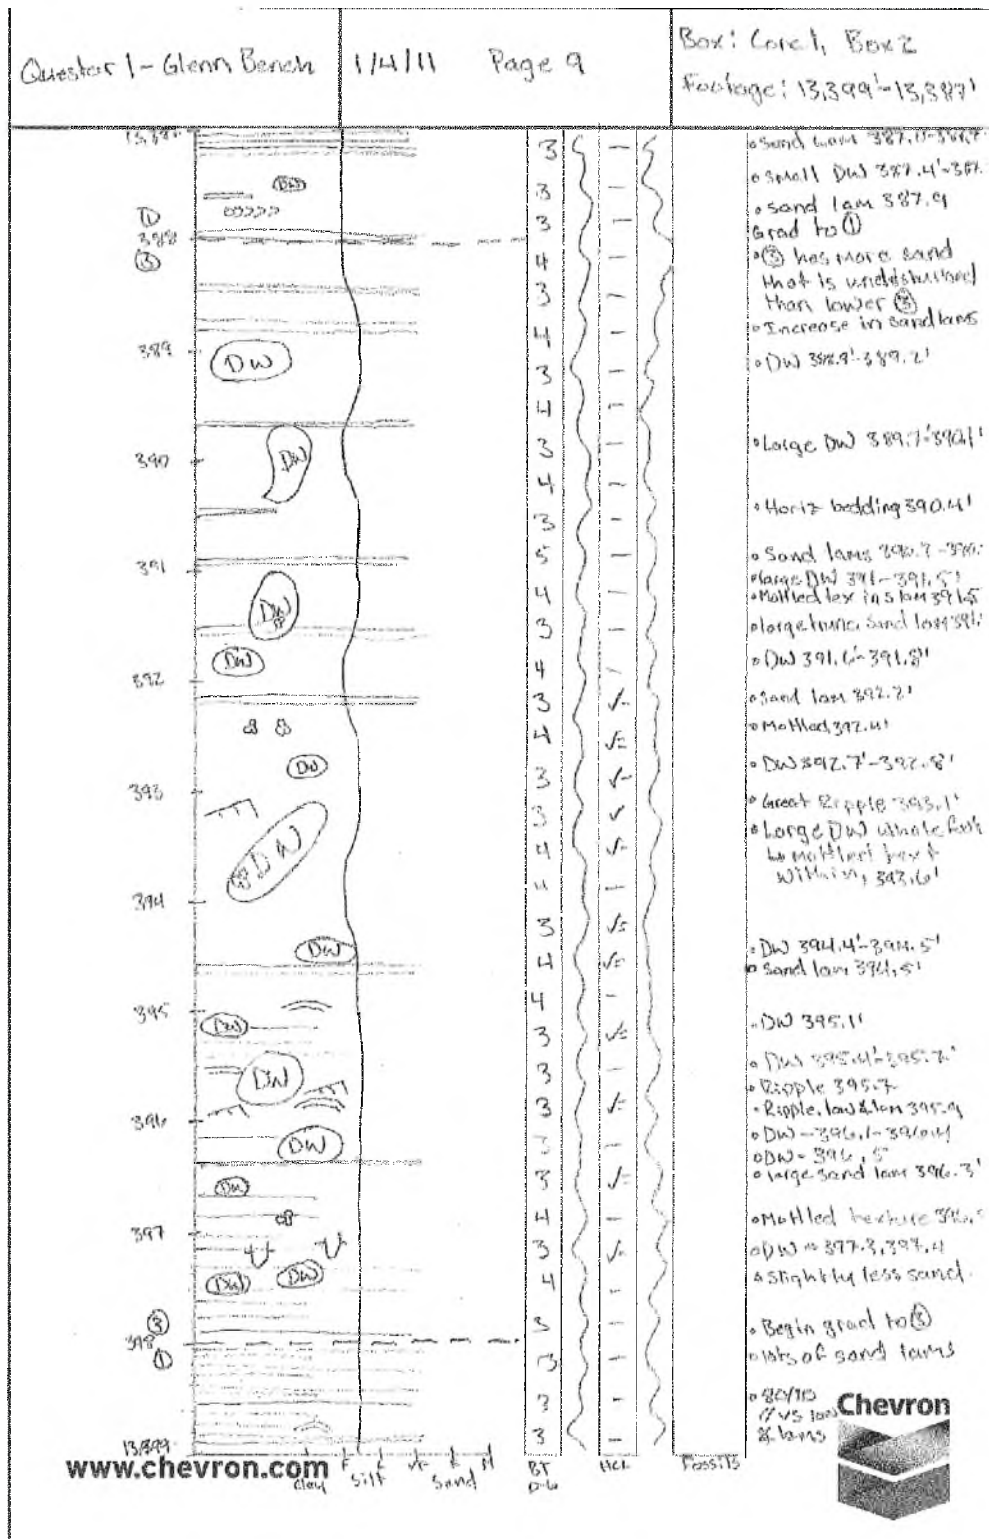 Questar 1 - Glenn Bench
1/4/11
Page 9
Box: Core 1, Box 2
Footage: 13,399'-13,387'
13,387
①
388
③
389
390
391
392
393
394
395
396
397
③
398
①
13,399
DW
DW
DW
DW
DW
DW
DW
DW
DW
DW
DW
DW
DW
DW
3
3
3
4
3
4
3
4
3
4
3
5
4
3
4
3
4
3
3
4
4
3
4
4
3
3
3
3
3
4
3
4
3
3
3
3
• Sand lam
• Small DW 387.4'
• Sand lam 387.9
Grad to ①
• ③ has more sand
that is undisturbed
than lower ③
• Increase in sand lams
• DW 388.9'-389.2'
• Large DW 389.7'-390.1'
• Horiz bedding 390.4'
• Sand lams 390.7
• large DW 391-391.5'
• Mottled tex in slam 391.5
• large trunc. sand lam
• DW 391.6'-391.8'
• Sand lam 392.2'
• Mottled 392.4'
• DW 392.7'-392.8'
• Great Ripple 393.1'
• Large DW whole
↳ mottled text
within, 393.6'
• DW 394.4'-394.5'
• Sand lam 394.5'
• DW 395.1'
• DW 395.4'-395.7'
• Ripple 395.7
• Ripple, & lam 395.9
• DW - 396.1-396.4
• DW - 396.5
• large sand lam 396.3'
• Mottled texture
• DW = 397.3, 397.4
• Slightly less sand
• Begin grad to ③
• lots of sand lams
• 80/10
& lams
Chevron
www.chevron.com
Clay
F
Silt
C
VF
F
Sand
M
BT
0-6
HCl
Fossils